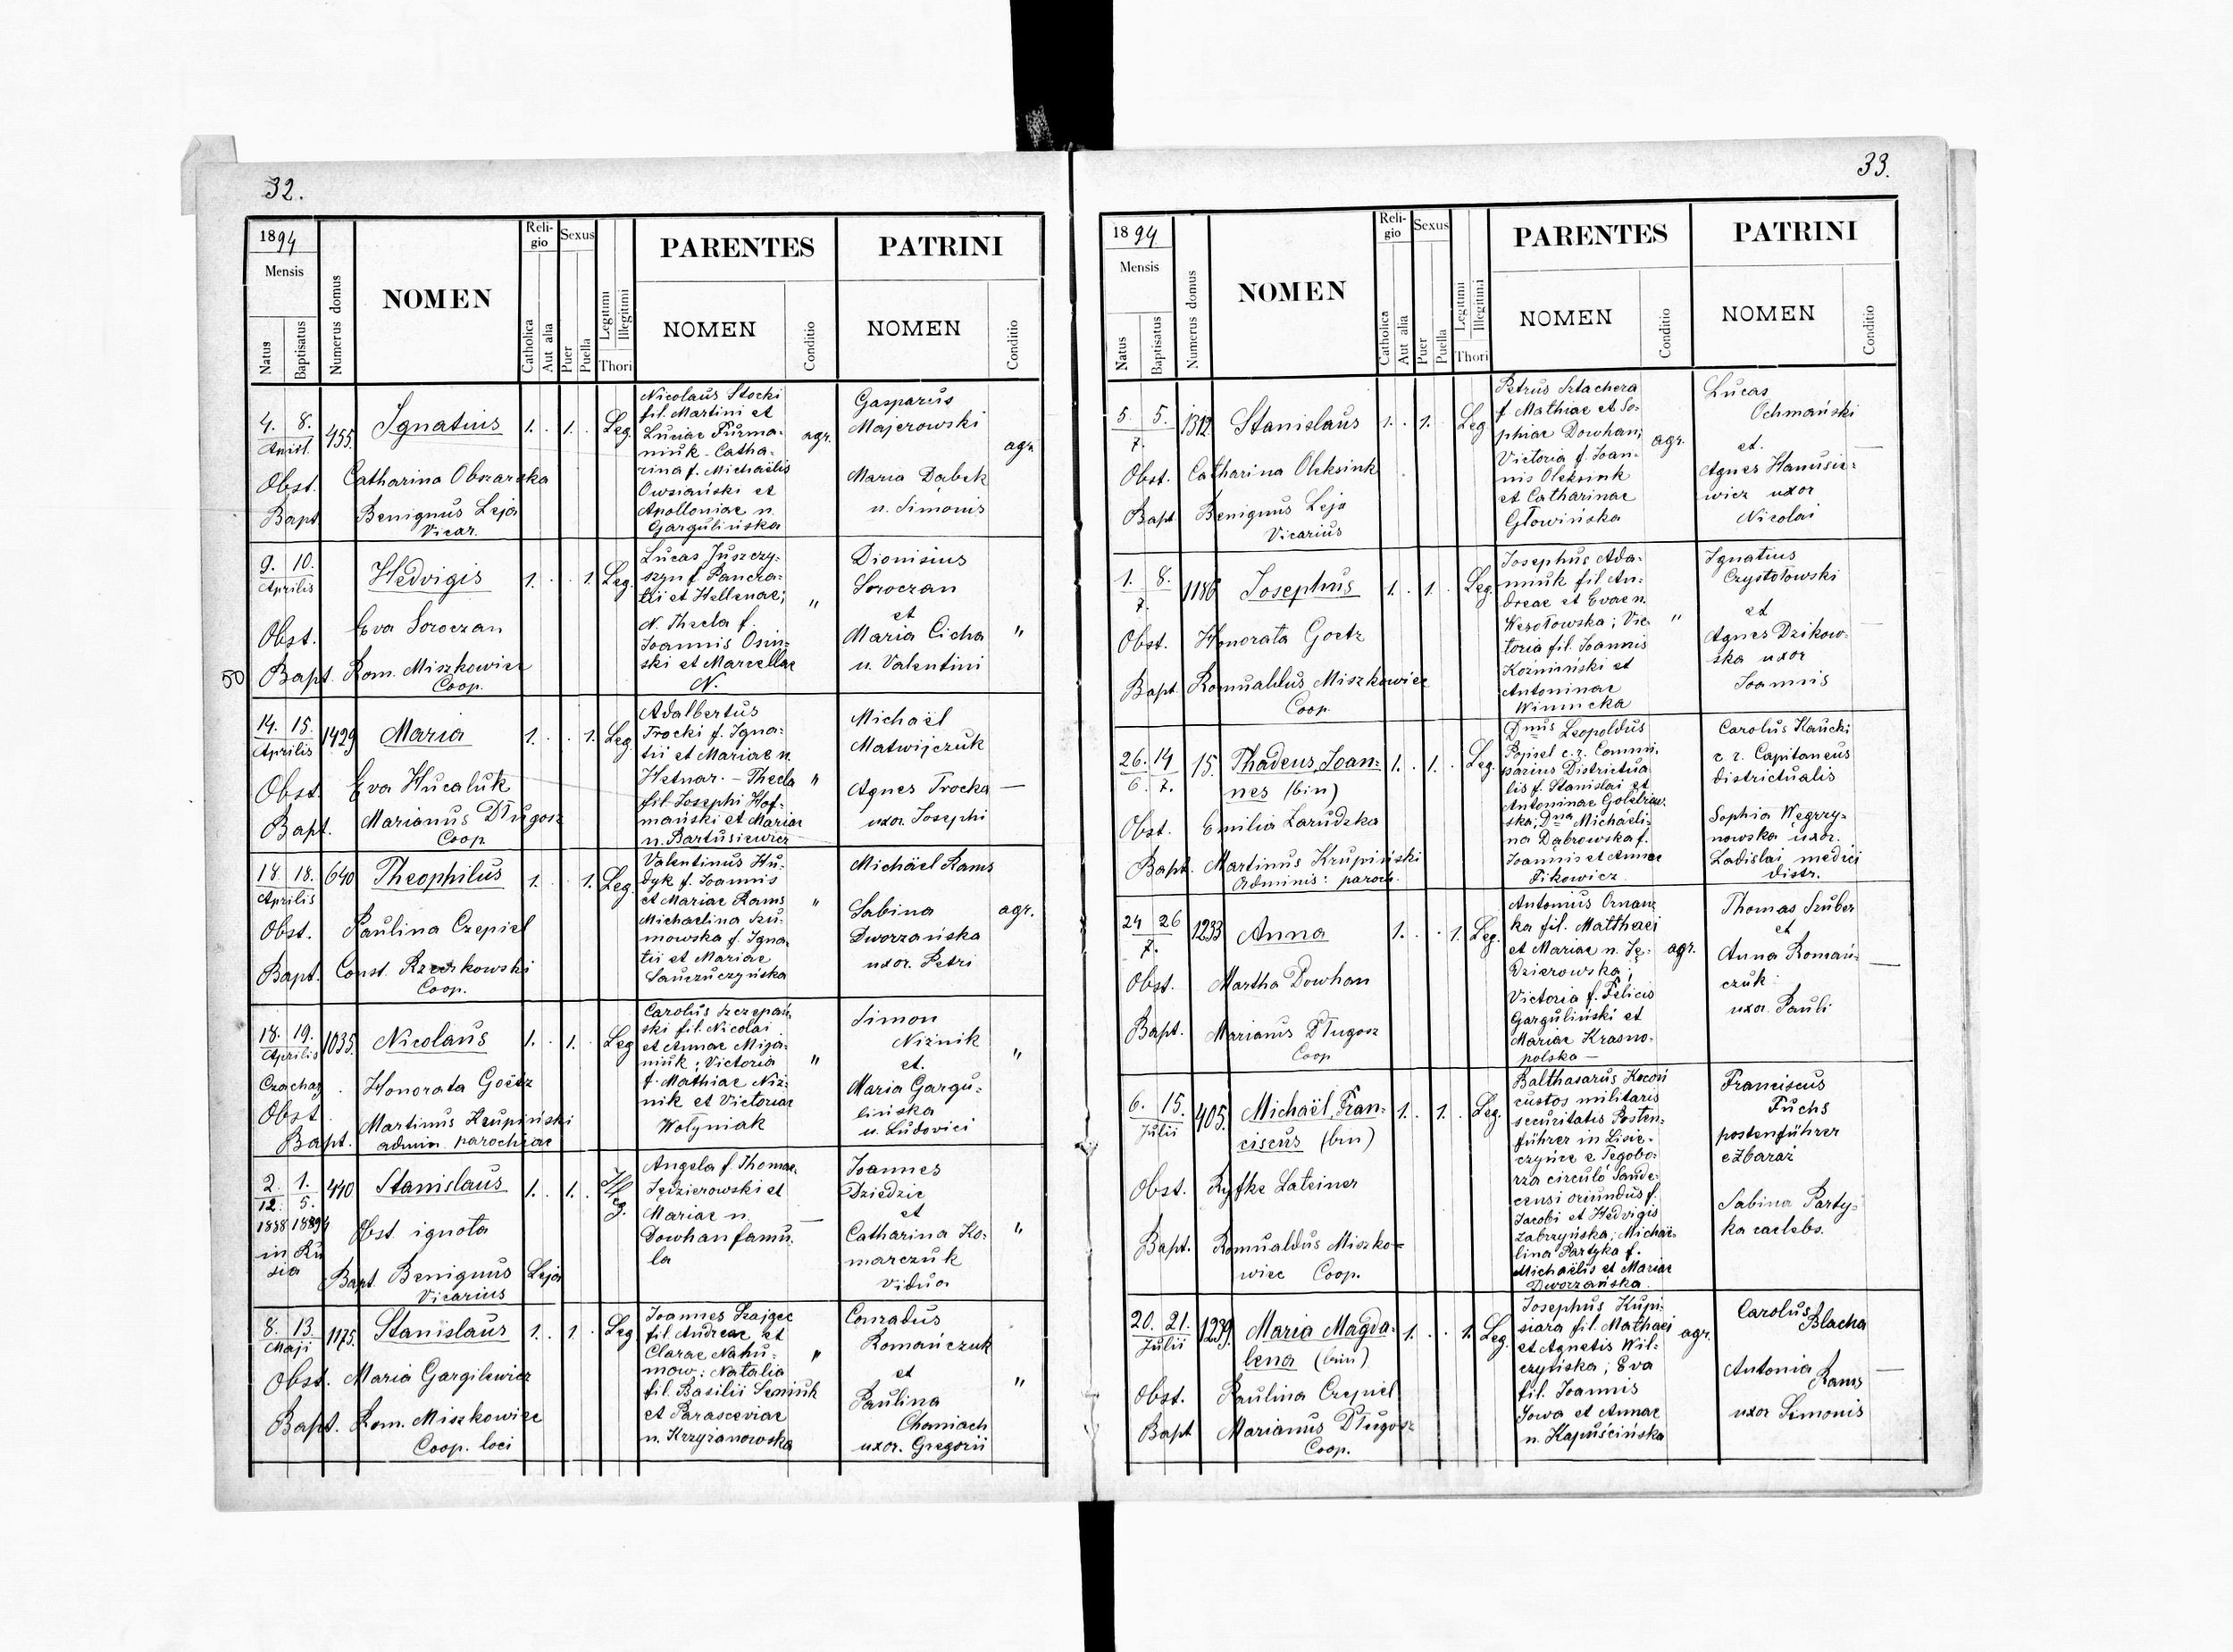 32.
1894
Mensis
Natus
Baptisatus
Numerus domus
NOMEN
Reli-
gio
Catholica
Aut alia
Sexus
Puer
Puella
Legitimi
Illegitimi
Thori
PARENTES
NOMEN
Conditio
PATRINI
NOMEN
Conditio
4. 8.
455
Ignatius
1. . 1. . Leg.
Obst. Catharina Obszarska
Bapt. Benignus Leja
Vicar.
Nicolaus Stocki
fil. Martini et
Luciae Furma-
niuk - Catha-
rina f. Michaëlis
Owsiański et
Apolloniae n.
Gargulińska
agr.
Gasparus
Majerowski
Maria Dabek
u. Simonis
agr.
9. 10.
Aprilis
Hedvigis
1. . . 1. Leg.
Obst. Eva Soroczan
50
Bapt. Rom. Miszkowicz
Coop.
Lucas Juszczy-
szyn f. Pancra-
tii et Hellenae;
N. Thecla f.
Joannis Osin-
ski et Marcellae
N.
"
Dionisius
Soroczan
et
Maria Cicha
u. Valentini
"
14. 15.
Aprilis
1429
Maria
1. . . 1. Leg.
Obst. Eva Hucaluk
Bapt. Marianus Długosz
Coop.
Adalbertus
Trocki f. Igna-
tii et Mariae n.
Hetnar. - Thecla
fil. Josephi Hof-
mański et Mariae
n. Bartusiewicz
"
Michaël
Matwijczuk
Agnes Trocka
uxor Josephi
—
18. 18.
Aprilis
640
Theophilus
1. . . 1. Leg.
Obst. Paulina Czepiel
Bapt. Const. Rzeszkowski
Coop.
Valentinus Hu-
dyk f. Joannis
et Mariae Rams
Michaelina Szu-
mowska f. Igna-
tii et Mariae
"
Michäel Rams
Sabina
Dworzańska
uxor. Petri
agr.
18. 19.
Aprilis
1035.
Nicolaus
1. . 1. . Leg
Honorata Goëtz
Obst.
Martinus Krupiński
Bapt. admin. parochiae
Carolus Szczepań-
ski fil. Nicolai
et Annae Miga-
niuk; Victoria
f. Mathiae Niż-
nik et Victoriae
Wołyniak
"
Simon
Niżnik
et.
Maria Gargu-
lińska
u. Ludovici
"
2. 1.
12. 5.
440
Stanislaus
1. . 1. . Illeg.
Obst ignota
in Ru
sia
Bapt. Benignus Leja
Vicarius
Angela f. Thomae
Jędzierowski et
Mariae n.
Dowhan famu-
la
—
Joannes
Dziedzic
et
Catharina Ko-
marczuk
vidua
"
8. 13.
Maji
1175.
Stanislaus
1. . 1 . Leg
Obst. Maria Gargilewicz
Bapt. Rom. Miszkowicz
Coop. loci
Joannes Szajgec
fil. Andreae et
Clarae Nahu-
mow: Natalia
fil. Basilii Semiuk
et Parasceviae
n. Krzyżanowska
"
Conradus
Romańczuk
et
Paulina
Chamiach
uxor. Gregorii
"
33.
1894
Mensis
Natus
Baptisatus
Numerus domus
NOMEN
Reli-
gio
Catholica
Aut alia
Sexus
Puer
Puella
Legitimi
Illegitimi
Thori
PARENTES
NOMEN
Conditio
PATRINI
NOMEN
Conditio
5. 5.
7.
1312.
Stanislaus
1. . 1. . Leg
Obst. Catharina Oleksink
Bapt Benignus Leja
Vicarius
Petrus Sztachera
f Mathiae et So-
phiae Dowhan;
Victoria f. Joan-
nis Oleksink
et Catharinae
Głowińska
agr.
Lucas
Ochmański
et.
Agnes Hanusie-
wicz uxor
Nicolai
—
1. 8.
7.
1186
Josephus
1. . 1. . Leg.
Obst. Honorata Goetz
Bapt Romualdus Miszkowicz
Coop.
Josephus Ada-
miuk fil An-
dreae et Evae n.
Wesołowska; Vic-
toria fil. Joannis
Koźmiński et
Antoninae
Winnicka
"
Ignatius
Czystołowski
et
Agnes Dzikow-
ska uxor
Joannis
—
26. 14
6. 7.
15.
Thadeus, Joan-
nes (bin)
1. . 1. . Leg.
Obst. Emilia Zarudzka
Bapt. Martinus Krupiński
Adminis: paroch.
Dnus Leopoldus
Popiel c. r. Commi-
sarius Districtua
lis f. Stanislai et
Antoninae
ska; Dna Michäeli-
na Dąbrowska f.
Joannis et Annae
Fikowicz
Carolus Haücki
c. r. Capitaneus
districtualis
Sophia Węgrzy-
nowska uxor.
Ladislai medici
distr.
24 26
7.
1233
Anna
1. . . 1. Leg.
Obst. Martha Dowhan
Bapt. Marianus Długosz
Coop
ka fil. Matthaei
et Mariae n. Ję-
dzierowska;
Victoria f. Felicis
Garguliński et
Mariae Krasno-
polska —
agr.
Thomas Szuber
et
Anna Romań-
czuk
uxor. Pauli
—
6. 15.
Julii
405.
Michaël, Fran-
ciscus (bin)
1. . 1. . Leg.
Obst. Ryfke Lateiner
Bapt. Romualdus Miszko-
wicz Coop.
Balthasarus Kocoń
custos militaris
securitatis Posten-
führer in Lisie-
czyńce e Tęgobo-
rza circulo Sande-
censi oriundus f.
Jacobi et Hedvigis
Zabrzyńska; Michae-
lina Partyka f.
Michaëlis et Mariae
Dworzańska
Franciscus
Fuchs
postenführer
e Zbaraż
Sabina Party-
ka caelebs.
20. 21.
Julii
1239.
Maria Magda-
lena (bin)
1. . . 1. Leg.
Obst. Paulina Czepiel
Bapt Marianus Długosz
Coop.
Josephus Kupi-
siara fil. Mathaei
et Agnetis Wil-
czyńska; Eva
fil. Joannis
Sowa et Annae
n. Kapuścińska
agr.
Carolus
Blacha
Antonia
Rams
uxor Simonis
—